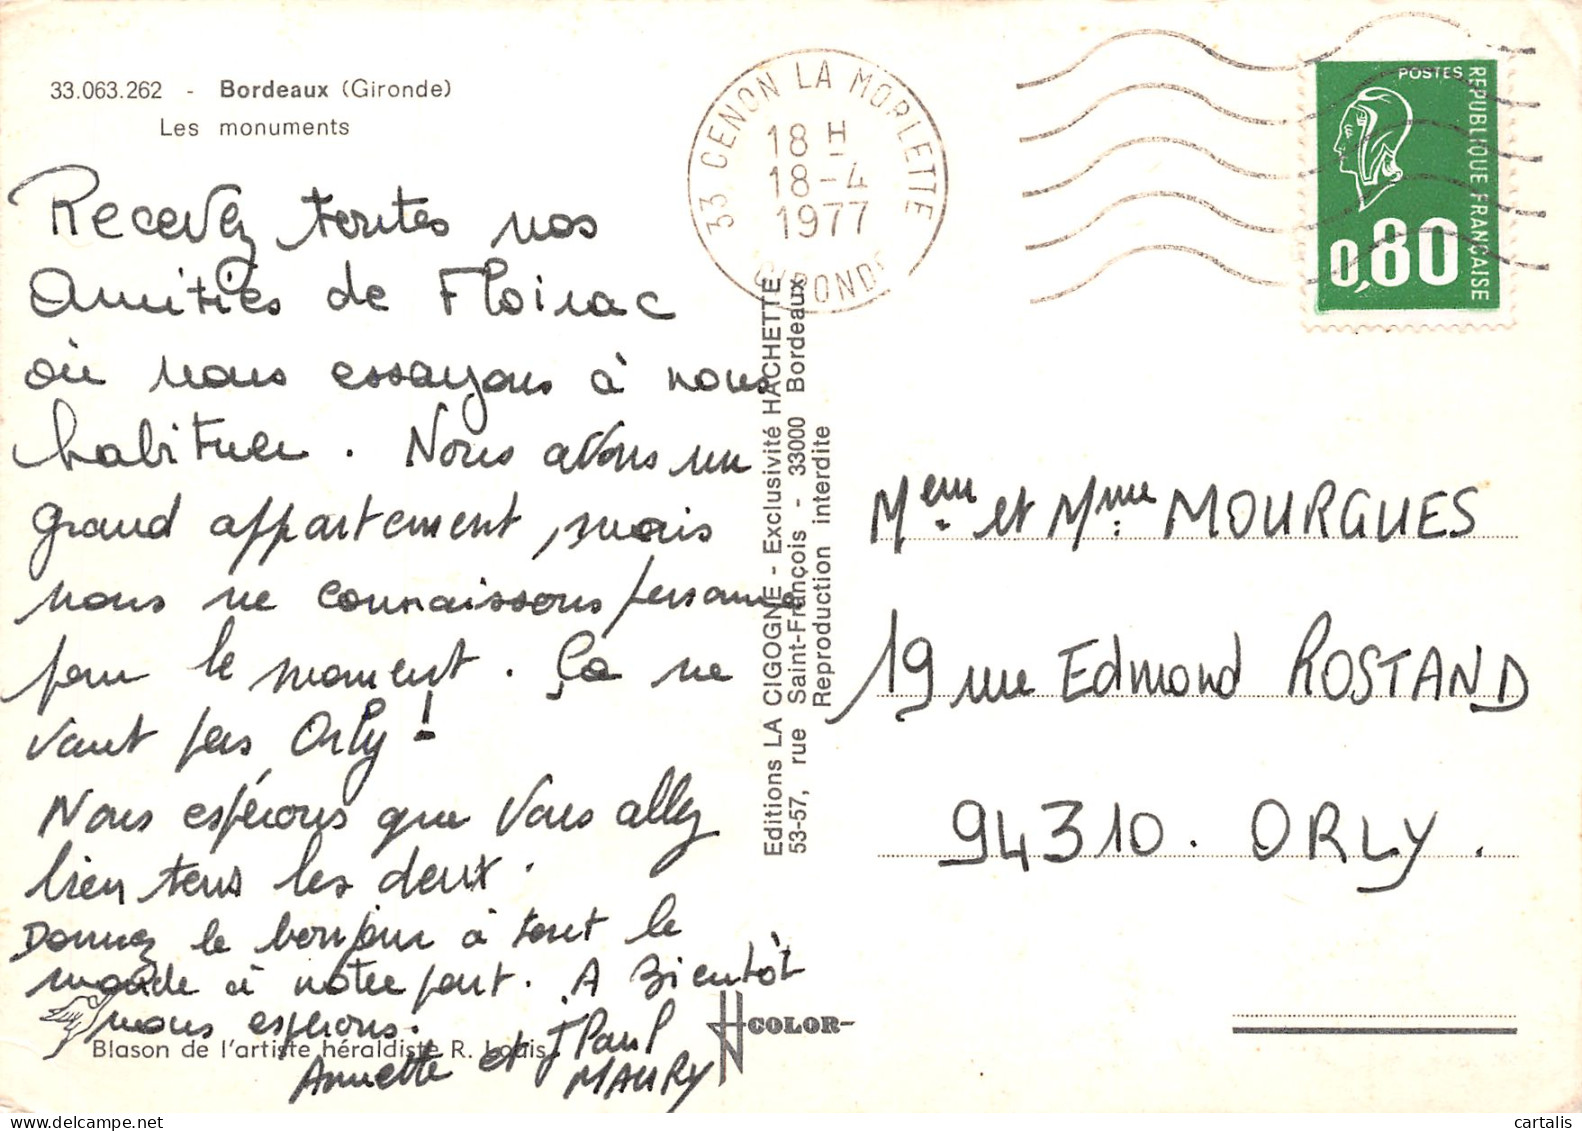 33.063.262 - Bordeaux (Gironde)
Les monuments
33 CENON LA MORLETTE
18 H
18-4
1977
GIRONDE
POSTES
REPUBLIQUE FRANÇAISE
0,80
Recevez toutes nos
Amitiés de Floirac
où nous essayons à nous
habituer. Nous avons un
grand appartement, mais
nous ne connaissons personne
pour le moment. Ça ne
vaut pas Orly!
Nous espérons que vous allez
bien tous les deux.
Donnez le bonjour à tout le
monde à notre part. A Bientôt
nous espérons.
Annette et J Paul
MAURY
Blason de l'artiste héraldiste R. Louis
Editions LA CIGOGNE - Exclusivité HACHETTE
53-57, rue Saint-François - 33000 Bordeaux
Reproduction interdite
COLOR
Meur et Mme MOURGUES
19 rue Edmond ROSTAND
94310. ORLY.
cartalis